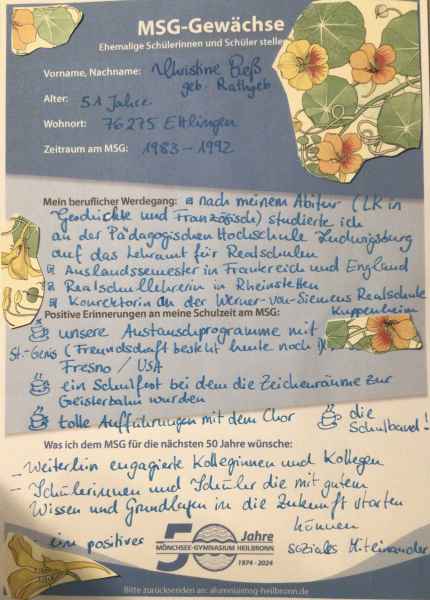 MSG-Gewächse
Ehemalige Schülerinnen und Schüler stellen
Vorname, Nachname: Christine Beß
geb. Rathgeb
Alter: 51 Jahre
Wohnort: 76275 Ettlingen
Zeitraum am MSG: 1983 – 1992
Mein beruflicher Werdegang: nach meinem Abitur (LK in
Geschichte und Französisch) studierte ich
an der Pädagogischen Hochschule Ludwigsburg
auf das Lehramt für Realschulen
Auslandssemester in Frankreich und England
Realschullehrerin in Rheinstetten
Konrektorin an der Werner-von-Siemens Realschule
Kuppenheim
Positive Erinnerungen an meine Schulzeit am MSG:
unsere Austauschprogramme mit
St.-Genis (Freundschaft besteht heute noch!),
Fresno / USA
ein Schulfest bei dem die Zeichenräume zur
Geisterbahn wurden
tolle Aufführungen mit dem Chor
die Schulband!
Was ich dem MSG für die nächsten 50 Jahre wünsche:
- Weiterhin engagierte Kolleginnen und Kollegen
- Schülerinnen und Schüler die mit gutem
Wissen und Grundlagen in die Zukunft starten
können
- ein positives soziales Miteinander
50 Jahre
MÖNCHSEE-GYMNASIUM HEILBRONN
1974 - 2024
Bitte zurücksenden an: alumni@msg-heilbronn.de